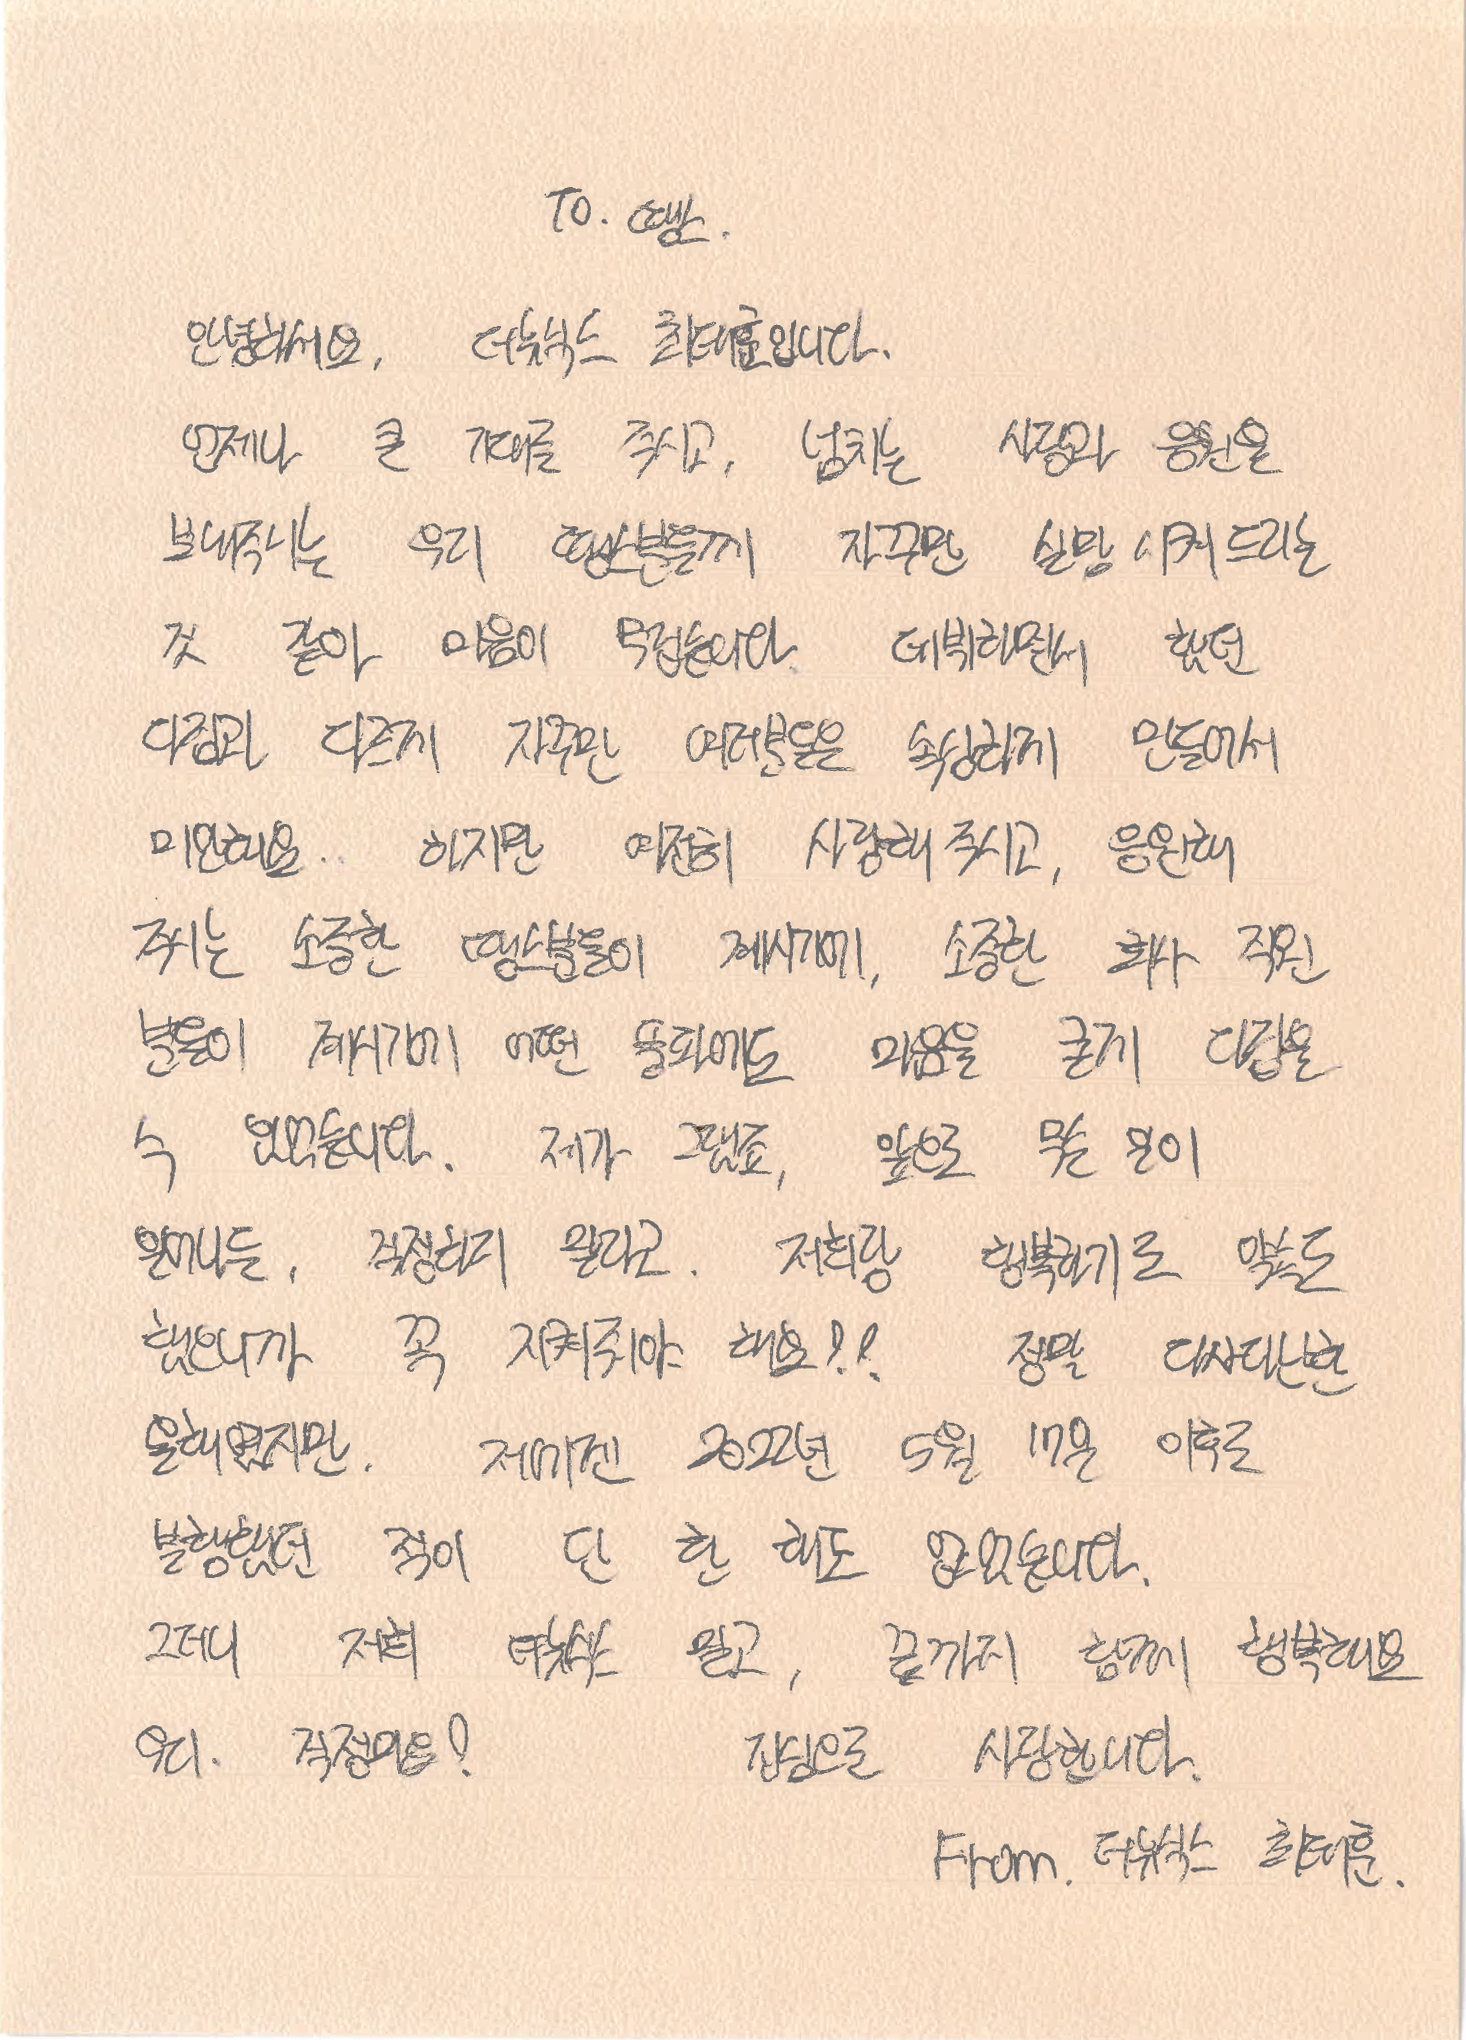 To. 땡스.
안녕하세요, 더뉴식스 최태훈입니다.
언제나 큰 기대를 주시고, 넘치는 사랑과 응원을
보내주시는 우리 땡스분들께 자꾸만 실망시켜 드리는
것 같아 마음이 무겁습니다. 데뷔하면서 했던
다짐과 다르게 자꾸만 여러분들을 속상하게 만들어서
미안해요.. 하지만 여전히 사랑해 주시고, 응원해
주시는 소중한 땡스분들이 계시기에, 소중한 회사 직원
분들이 계시기에 어떤 풍파에도 마음을 굳게 다잡을
수 있었습니다. 제가 그랬죠, 앞으로 무슨 일이
일어나든, 걱정하지 말라고. 저희랑 행복하기로 약속도
했으니까 꼭 지켜줘야 해요!! 정말 다사다난한
올해였지만. 저에겐 2022년 5월 17일 이후로
불행했던 적이 단 한 해도 없었습니다.
그러니 저희 더뉴식스 믿고, 끝까지 함께 행복해요
우리. 걱정마요! 진심으로 사랑합니다.
From. 더뉴식스 최태훈.